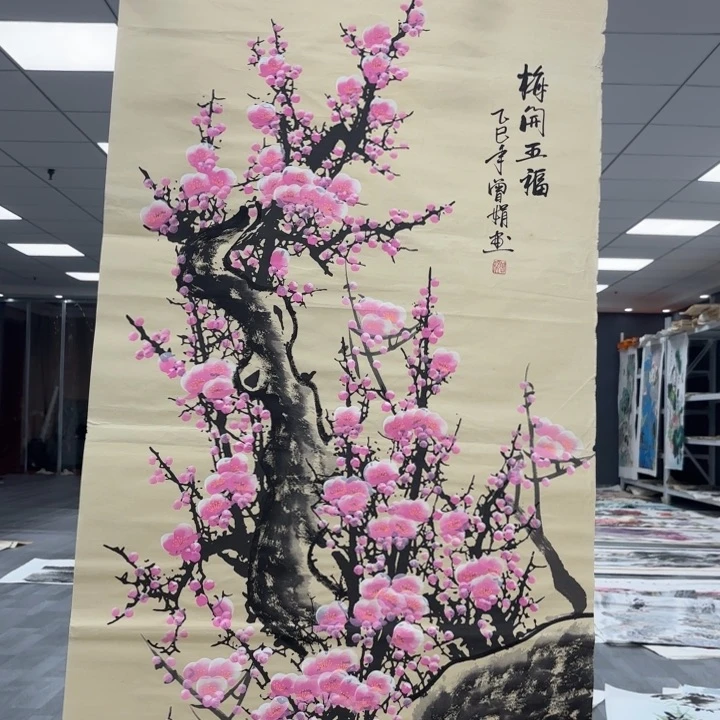 梅開五福
乙巳年曾娟画